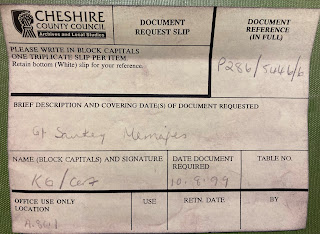 CHESHIRE
COUNTY COUNCIL
Archives and Local Studies
DOCUMENT
REQUEST SLIP
DOCUMENT
REFERENCE
(IN FULL)
PLEASE WRITE IN BLOCK CAPITALS
ONE TRIPLICATE SLIP PER ITEM.
Retain bottom (White) slip for your reference.
P286/5446/6
BRIEF DESCRIPTION AND COVERING DATE(S) OF DOCUMENT REQUESTED
Gt Sankey Marriages
NAME (BLOCK CAPITALS) AND SIGNATURE
DATE DOCUMENT
REQUIRED
TABLE NO.
10.8.99
OFFICE USE ONLY
LOCATION
USE
RETN. DATE
BY